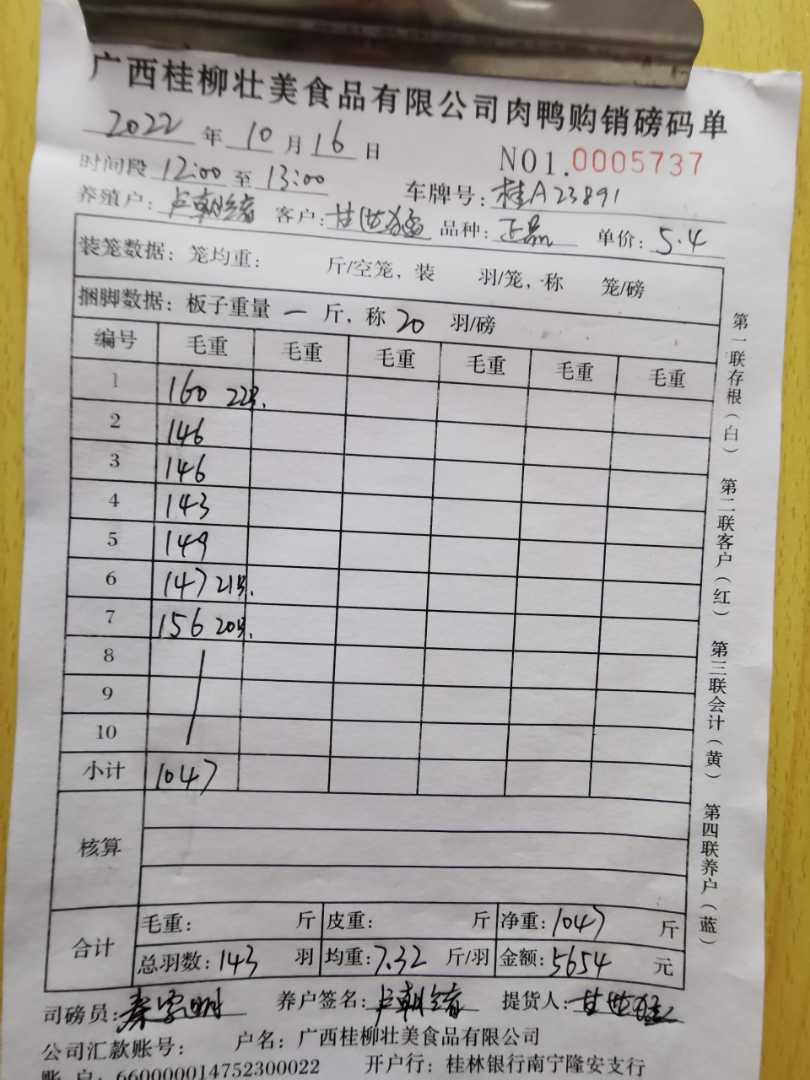 广西桂柳壮美食品有限公司肉鸭购销磅码单
2022 年 10 月 16 日 NO1.0005737
时间段 12:00 至 13:00 车牌号: 桂A23891
养殖户: 卢朝绪 客户: 甘世猛 品种: 正品 单价: 5.4
装笼数据: 笼均重: 斤/空笼, 装 羽/笼, 称 笼/磅
捆脚数据: 板子重量 一 斤, 称 20 羽/磅
编号 毛重 毛重 毛重 毛重 毛重 毛重
1 160 22羽.
2 146
3 146
4 143
5 149
6 147 21羽.
7 156 20羽.
8
9
10
小计 1047
核算
合计 毛重: 斤 皮重: 斤 净重: 1047 斤
总羽数: 143 羽 均重: 7.32 斤/羽 金额: 5654 元
司磅员: 养户签名: 卢朝绪 提货人: 甘世猛
公司汇款账号: 户名: 广西桂柳壮美食品有限公司
账户: 660000014752300022 开户行: 桂林银行南宁隆安支行
第一联存根(白) 第二联客户(红) 第三联会计(黄) 第四联养户(蓝)